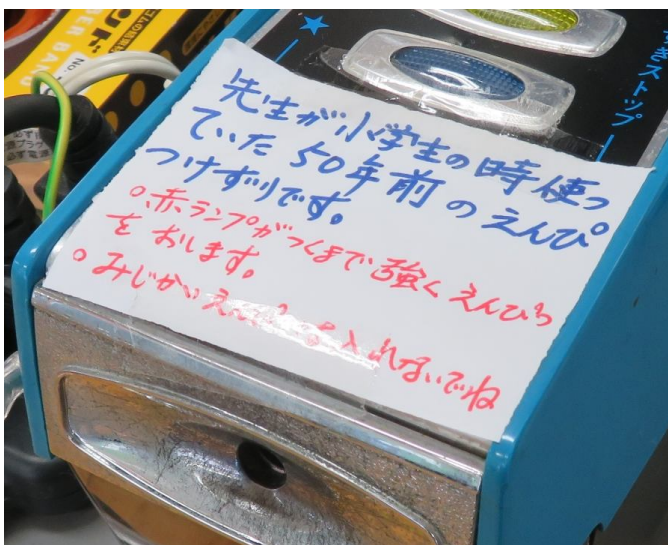 先生が小学生の時使っ
ていた50年前のえんぴ
つけずりです。
○赤ランプがつくまで強くえんぴつ
をおします。
○みじかいえんぴつは入れないでね
きストップ
バンド
ER BAND
NO.